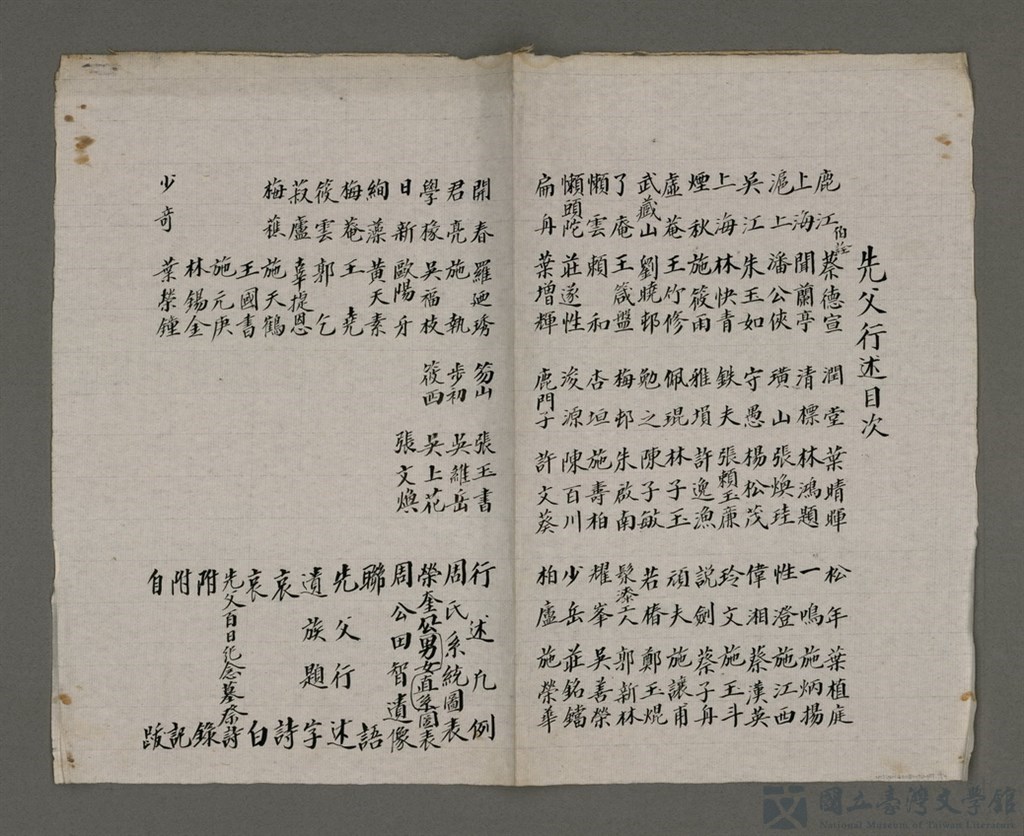 先父行述目次
鹿江 伯銓 蔡德宣
上海 聞蘭亭
滬上 潘公俠
吳江 朱玉如
上海 林快青
煙秋 施筱雨
虛菴 王竹修
武藏山 劉曉邨
了庵 王箴盤
懶雲 賴和
懶頭陀 莊遂性
扁舟 葉增輝
潤堂 葉晴暉
清標 林鴻題
璜山 張煥珪
守愚 楊松茂
鉄夫 張賴玉廉
雅塤 許逸漁
佩琨 林子玉
勉之 陳子敏
梅邨 朱啟南
杏垣 施壽柏
浚源 陳百川
鹿門子 許文葵
松年 葉植庭
一鳴 施炳揚
性澄 施江西
偉湘 蔡漢英
玲文 施玉斗
說劍 蔡子舟
頑夫 施讓甫
若樁 鄭玉焜
髹漆工人 郭新林
耀峯 吳善榮
少岳 莊銘鐺
柏盧 施榮華
開春 羅廼琇
君亮 施執
學椽 吳福枝
日新 歐陽牙
絢藻 黃天素
梅菴 王堯
筱雲 郭乞
菽盧 辜提恩
梅樵 施天鶴
王國書
施元庚
林錫金
少奇 葉榮鐘
笏山 張玉書
步初 吳維岳
筱西 吳上花
張文煥
行述凡例
周氏系統圖表
榮奎公男女直系圖表
周公田智遺像
聯語
先父行述
遺族題字
哀詩
哀白
先父百日紀念墓祭詩
附錄
附記
自跋
國立臺灣文學館
National Museum of Taiwan Literature